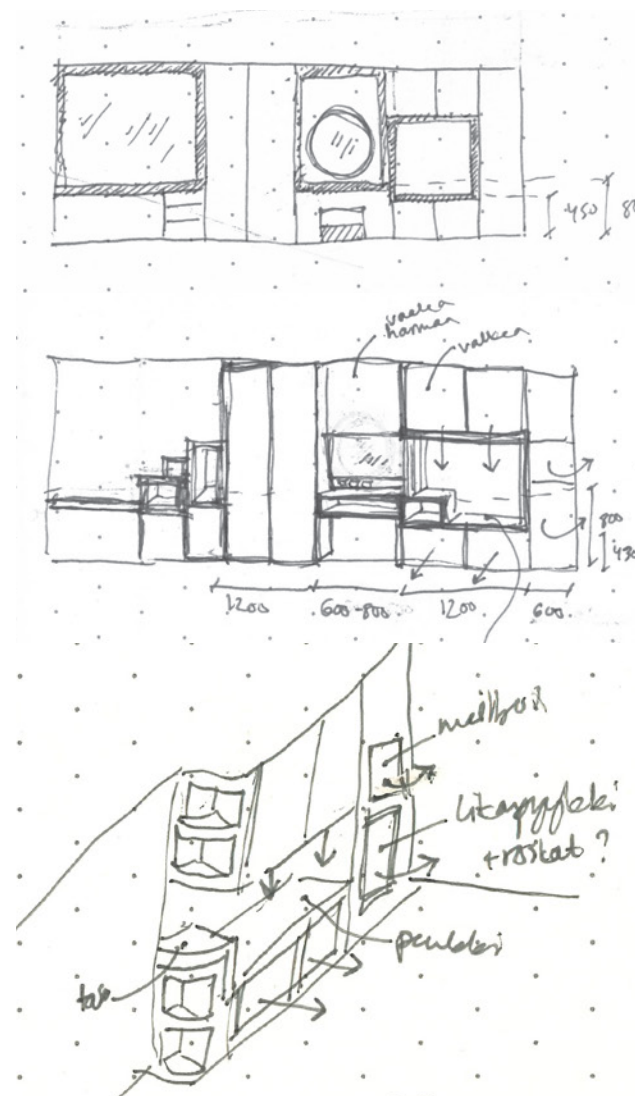 450
vaalea
harmaa
valkea
800
450
1200
600-800
1200
600
mailbox
likapyykki
+roskat?
penkki
taso